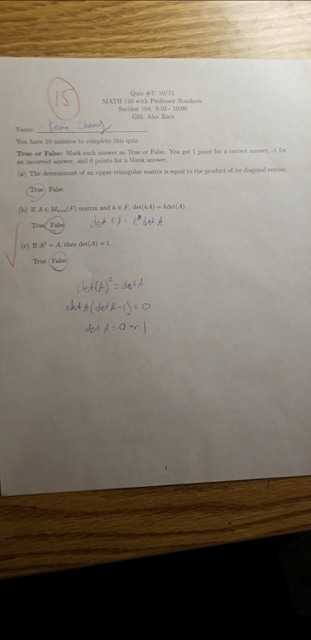 15
Quiz #7: 10/11
MATH 110 with Professor Stankova
Section 104: 9:10 - 10:00
GSI: Alex Zorn
Name: Kevin Zhang
You have 10 minutes to complete this quiz.
True or False: Mark each answer as True or False. You get 1 point for a correct answer, -1 for
an incorrect answer, and 0 points for a blank answer.
(a) The determinant of an upper-triangular matrix is equal to the product of its diagonal entries.
True False
(b) If A ∈ Mₙₓₙ(F) matrix and k ∈ F, det(kA) = kdet(A).
True False det kA = kⁿ det A
(c) If A² = A, then det(A) = 1.
True False
det(A)² = det A
det A (det A - 1) = 0
det A = 0 or 1
1